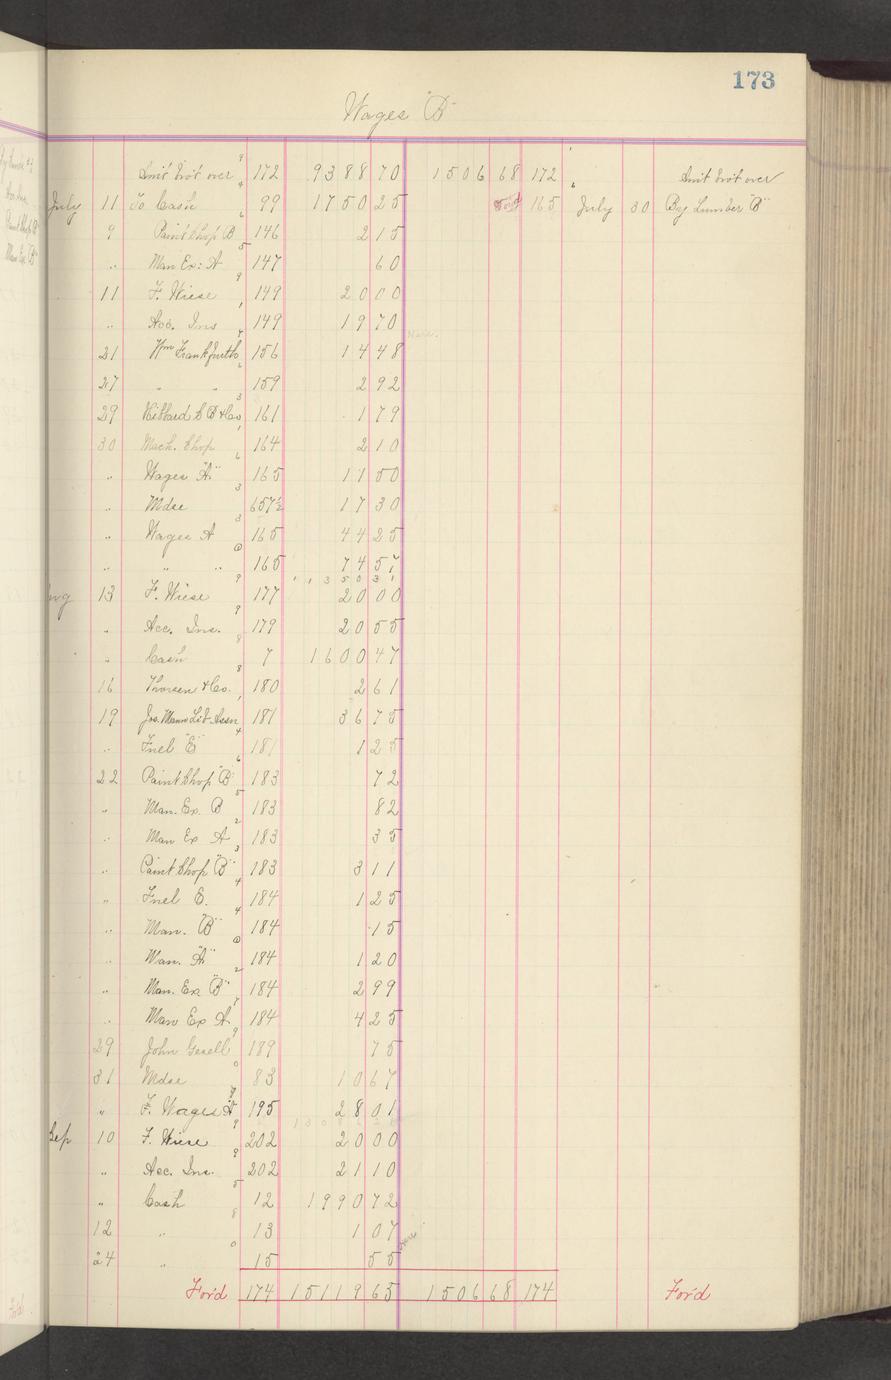 173
Wages "B"
Am't bro't over 172 9388 70 1506 68 172 Am't bro't over
July 11 To Cash 99 1750 25 Ford 165 July 30 By Lumber "B"
9 Paint Shop B 146 2 15
" Man Ex: A 147 60
11 F. Wiese 149 20 00
" Acc. Ins 149 19 70
21 Wm Frankfurth 156 14 48
27 " " 159 2 92
29 Hibbard S B & Co 161 1 79
30 Mach. Shop 164 2 10
" Wages "A" 165 11 50
" Mdse 657½ 17 30
" Wages A 165 44 25
" " " 165 74 57
11350 31
Aug 13 F. Wiese 177 20 00
" Acc. Ins. 179 20 55
" Cash 7 1600 47
16 Thorsen & Co. 180 2 61
19 Jos. Mann Lib Assn 181 36 75
" Fuel "E" 181 1 25
22 Paint Shop "B" 183 72
" Man. Ex. B 183 82
" Man Ex A 183 35
" Paint Shop "B" 183 3 11
" Fuel E. 184 1 25
" Man. "B" 184 15
" Man. "A" 184 1 20
" Man. Ex "B" 184 2 99
" Man Ex A 184 4 25
29 John Gesell 189 75
31 Mdse 83 10 67
" F. Wages A 195 28 01
Sep 10 F. Wiese 202 20 00
" Acc. Ins. 202 21 10
" Cash 12 1990 72
12 " 13 1 07
24 " 15 55
For'd 174 15119 65 1506 68 174 For'd